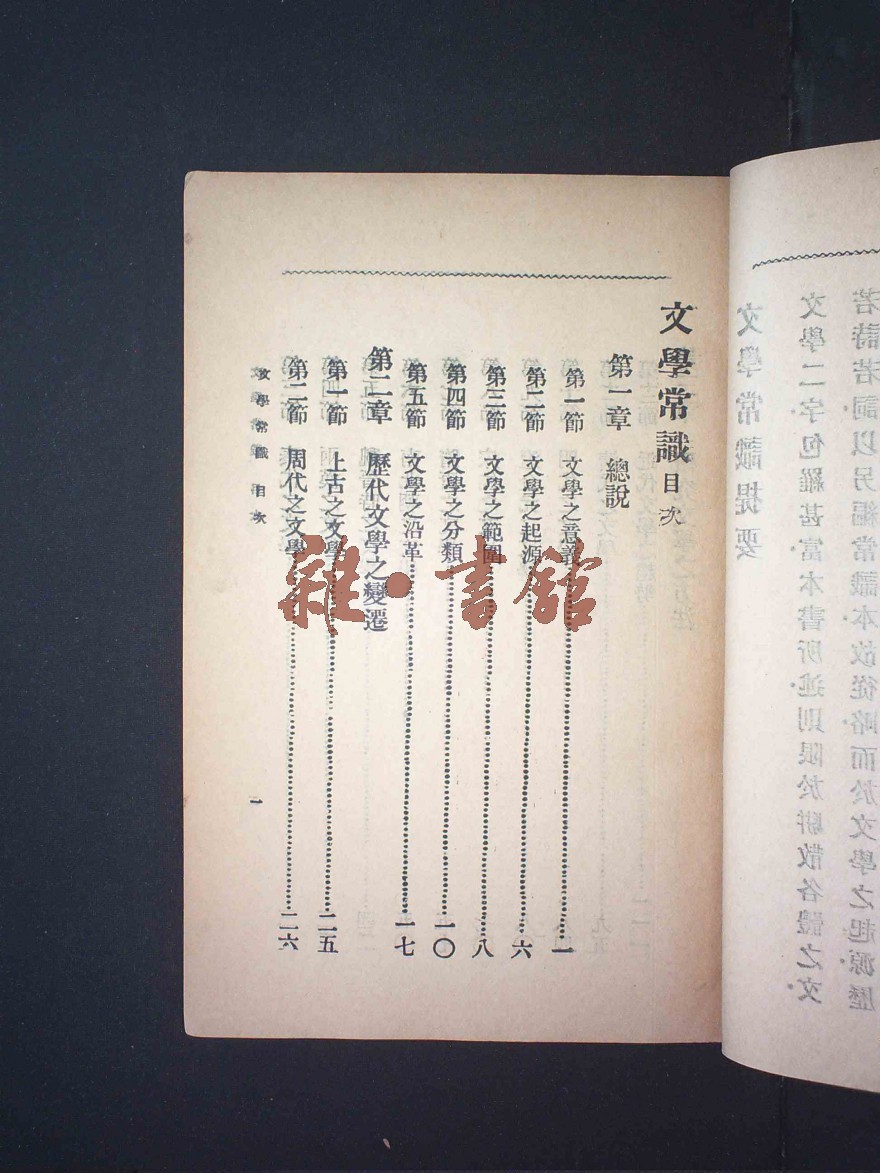 文學常識目次
第一章 總說
第一節 文學之意義……一
第二節 文學之起源……六
第三節 文學之範圍……八
第四節 文學之分類……一〇
第五節 文學之沿革……一七
第二章 歷代文學之變遷
第一節 上古之文學……二五
第二節 周代之文學……二六
文學常識目次
一
雜·書館
若詩若詞以另編常識本故從略而於文學之起源歷
文學二字包羅甚富本書所述則限於駢散各體之文
文學常識提要